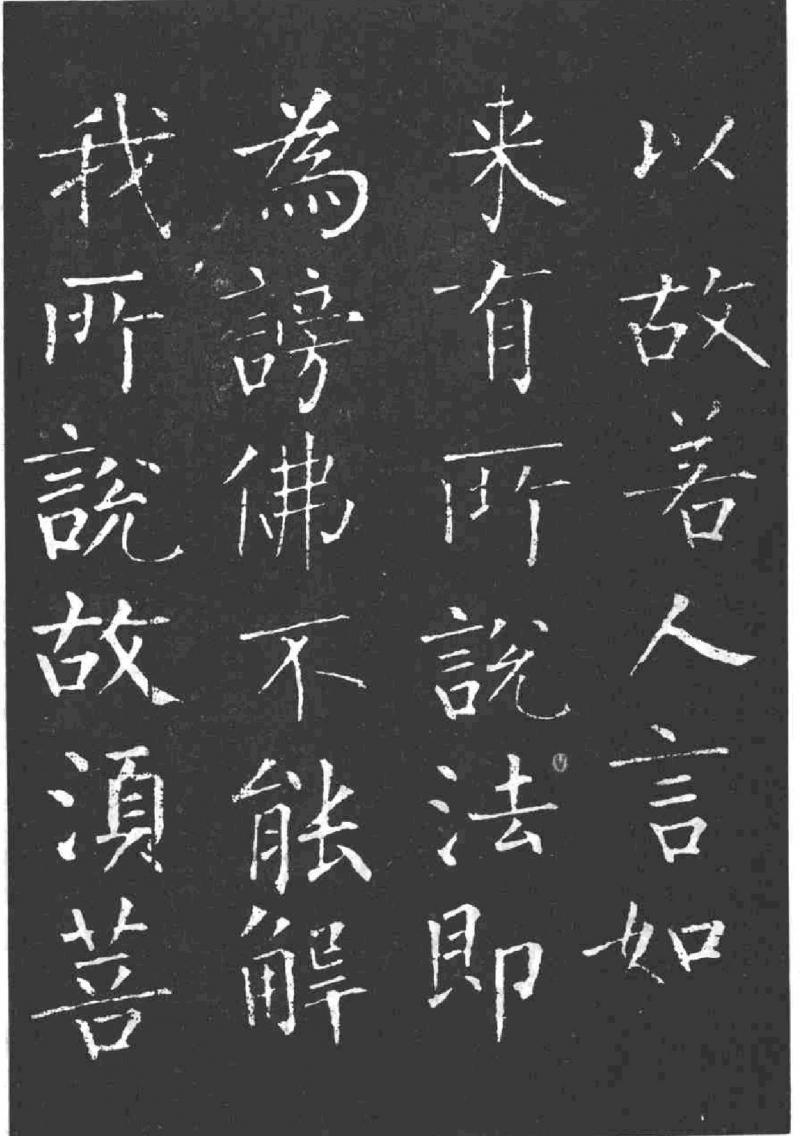 以故若人言如
来有所說法即
為謗佛不能解
我所說故湏菩